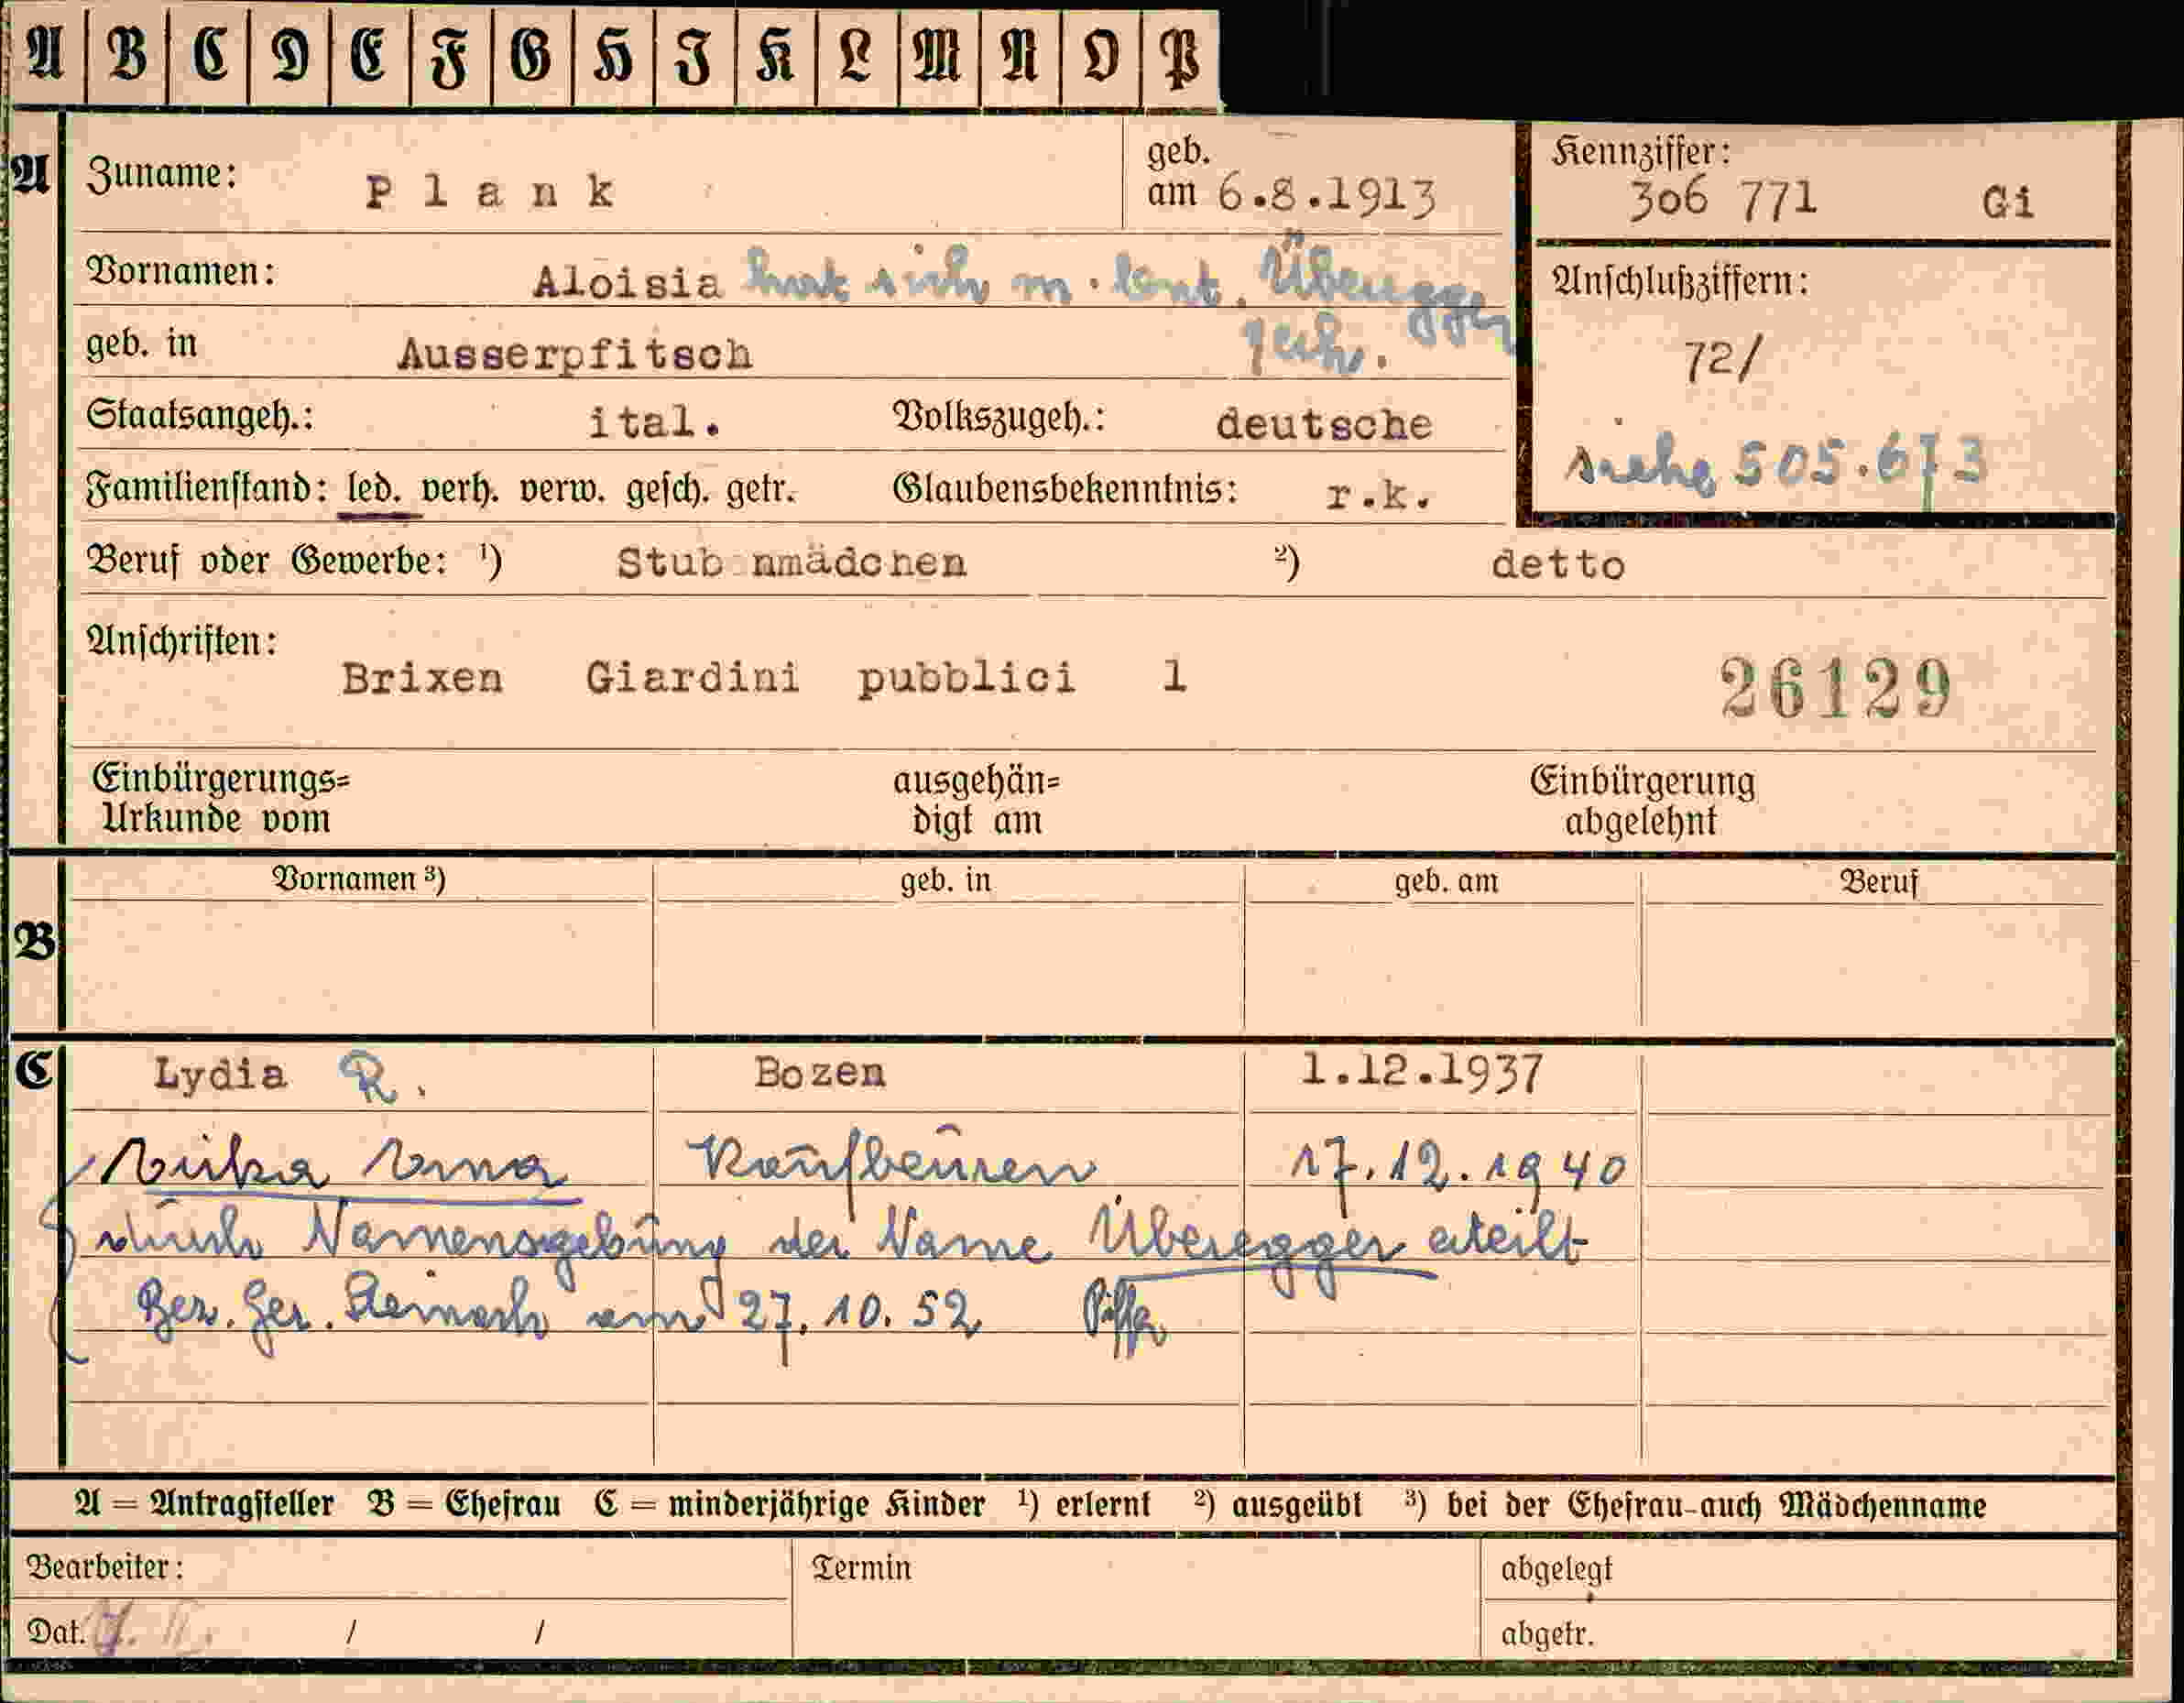 A B C D E F G H I K L M N O P
A Zuname: Plank geb. am 6.8.1913 Kennziffer: 306 771 Gi
Vornamen: Aloisia hat sich m. Überegger
geb. in Ausserpfitsch
Anschlußziffern: 72/
Staatsangeh.: ital. Volkszugeh.: deutsche
siehe 505.673
Familienstand: led. verh. verw. gesch. getr. Glaubensbekenntnis: r.k.
Beruf oder Gewerbe: ¹) Stub nmädchen ²) detto
Anschriften: Brixen Giardini pubblici 1 26129
Einbürgerungs= ausgehän= Einbürgerung
Urkunde vom digt am abgelehnt
B Vornamen ³) geb. in geb. am Beruf
C Lydia R. Bozen 1.12.1937
Erika Erna Kaufbeuren 17.12.1940
durch Namensgebung der Name Überegger erteilt
Bez. Ger. am 27.10.52
A = Antragsteller B = Ehefrau C = minderjährige Kinder ¹) erlernt ²) ausgeübt ³) bei der Ehefrau auch Mädchenname
Bearbeiter: Termin abgelegt
Dat. / / abgetr.